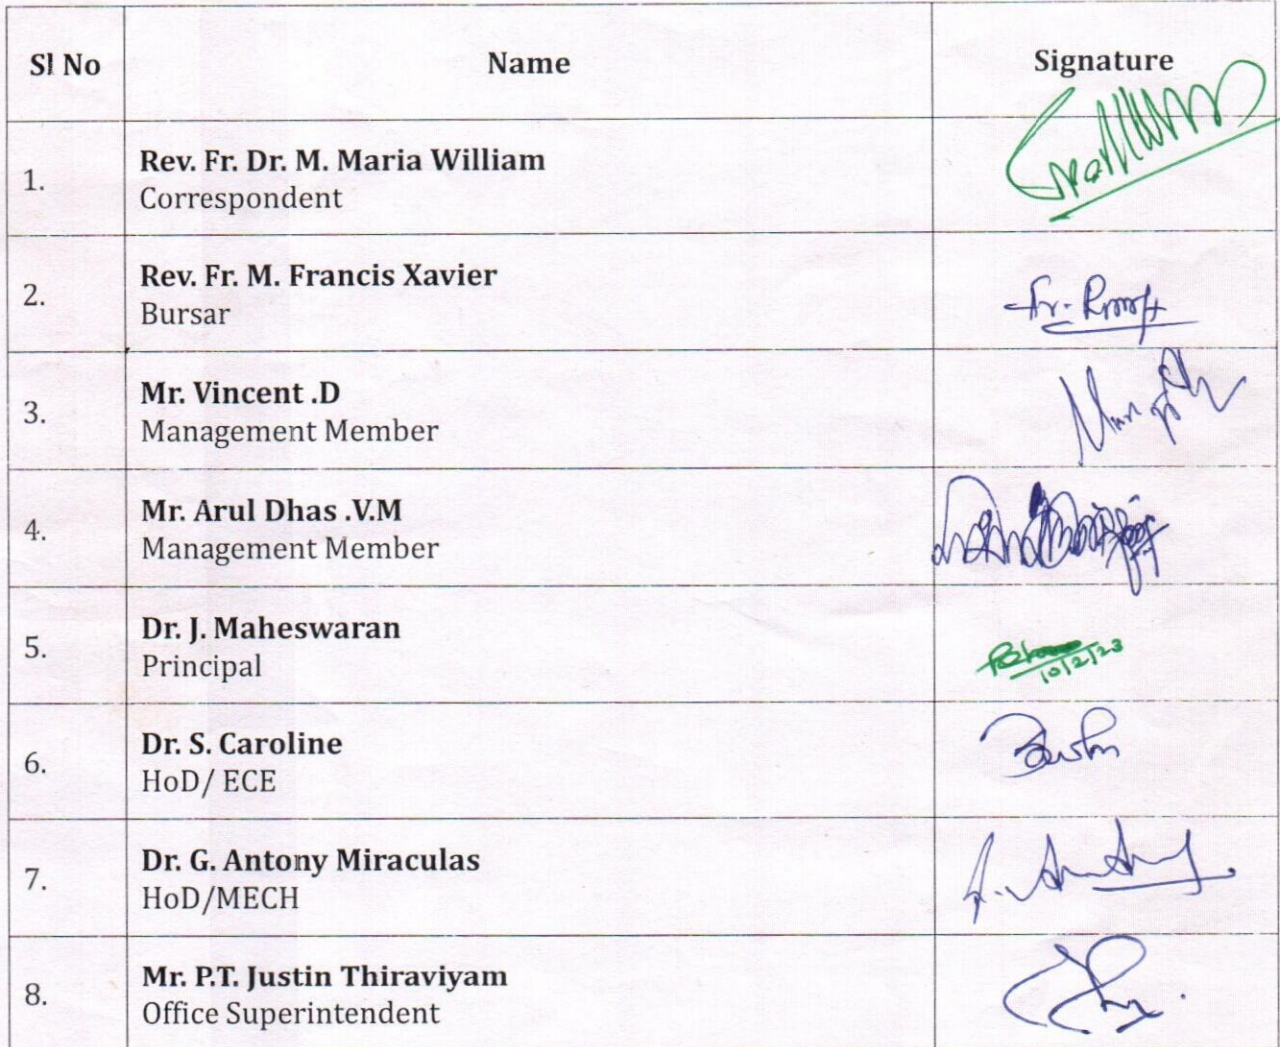 Sl No Name Signature
1. Rev. Fr. Dr. M. Maria William
Correspondent
2. Rev. Fr. M. Francis Xavier
Bursar
3. Mr. Vincent .D
Management Member
4. Mr. Arul Dhas .V.M
Management Member
5. Dr. J. Maheswaran
Principal
10/2/23
6. Dr. S. Caroline
HoD/ ECE
7. Dr. G. Antony Miraculas
HoD/MECH
8. Mr. P.T. Justin Thiraviyam
Office Superintendent